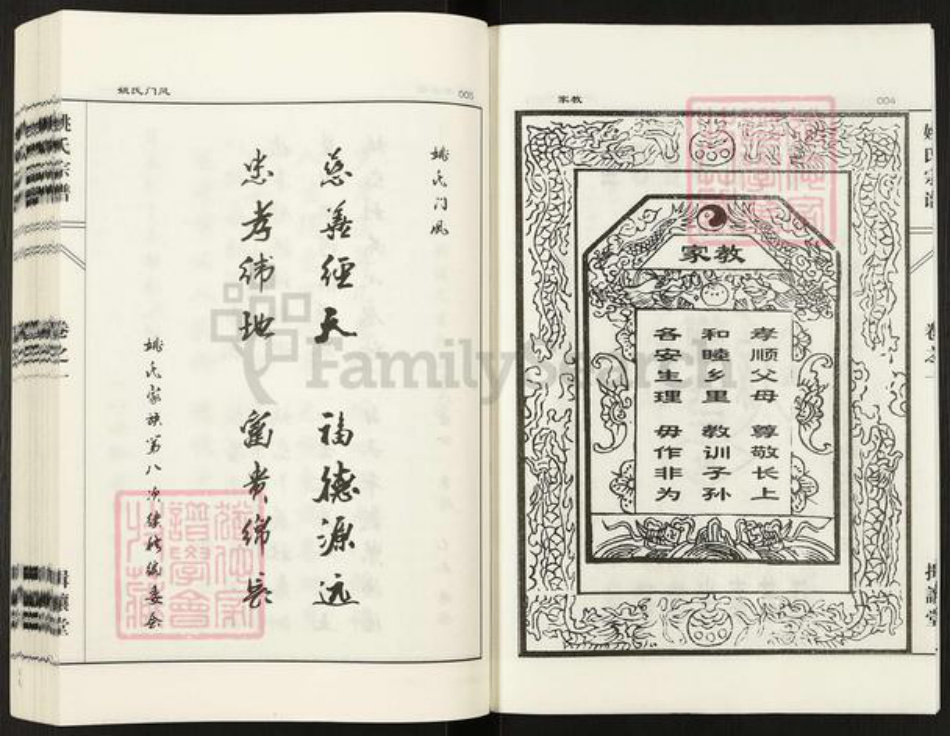 家教
004
家教
孝顺父母 尊敬长上
和睦乡里 教训子孙
各安生理 毋作非为
姚氏宗谱
卷之一
揖让堂
姚氏门风
005
姚氏门风
慈善经天 福德源远
忠孝纬地 富贵绵长
姚氏家族第八次续修编委会
姚氏宗谱
卷之一
揖让堂
FamilySearch